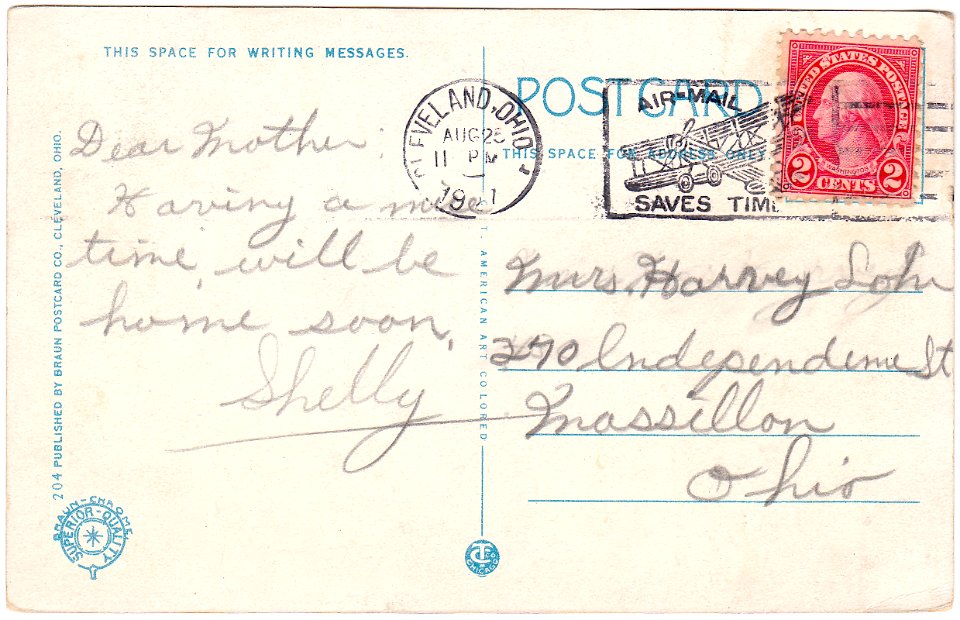 THIS SPACE FOR WRITING MESSAGES.
POSTCARD
THIS SPACE FOR ADDRESS ONLY.
CLEVELAND, OHIO
AUG 25
11 PM
AIR-MAIL
SAVES TIME
UNITED STATES POSTAGE
WASHINGTON
2 CENTS 2
Dear Mother:
Having a nice
time, will be
home soon.
Shelly
Mrs. Harvey
270 Independence St
Massillon
Ohio
204 PUBLISHED BY BRAUN POSTCARD CO., CLEVELAND, OHIO.
AMERICAN ART COLORED
BRAUN-CHROME
SUPERIOR-QUALITY
CHICAGO